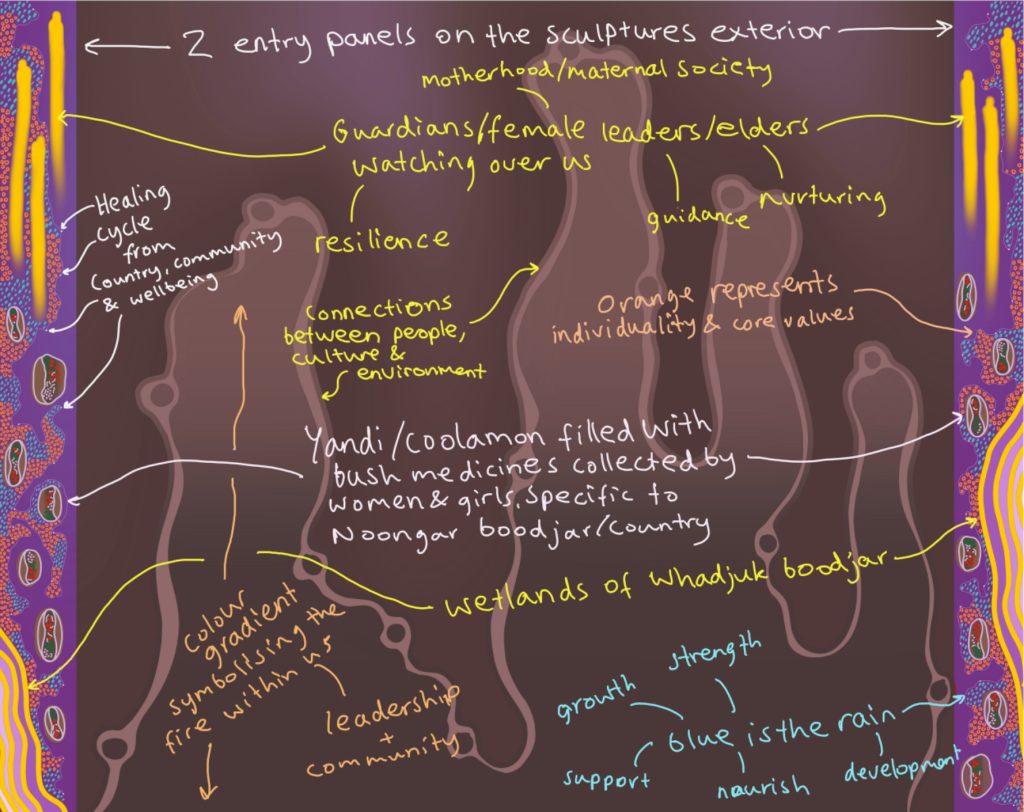 2 entry panels on the sculptures exterior
motherhood/maternal society
Guardians/female leaders/elders
watching over us
resilience
guidance
nurturing
Healing
cycle
from
Country, community
& wellbeing
Connections
between people,
culture &
environment
Orange represents
individuality & core values
Yandi/Coolamon filled with
bush medicines collected by
women & girls. Specific to
Noongar boodjar/Country
wetlands of Whadjuk boodjar
colour
gradient
symbolising the
fire within us
leadership
+
community
strength
growth
blue is the rain
support
nourish
development